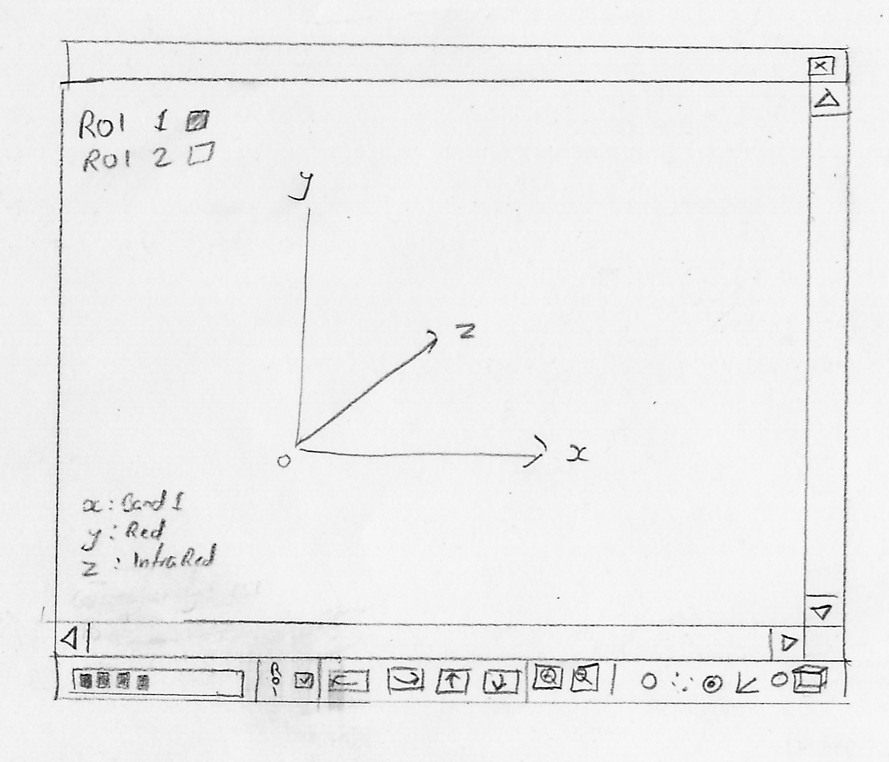 ROI 1
ROI 2
y
z
x
O
x : Band 1
y : Red
z : IntraRed
ROI